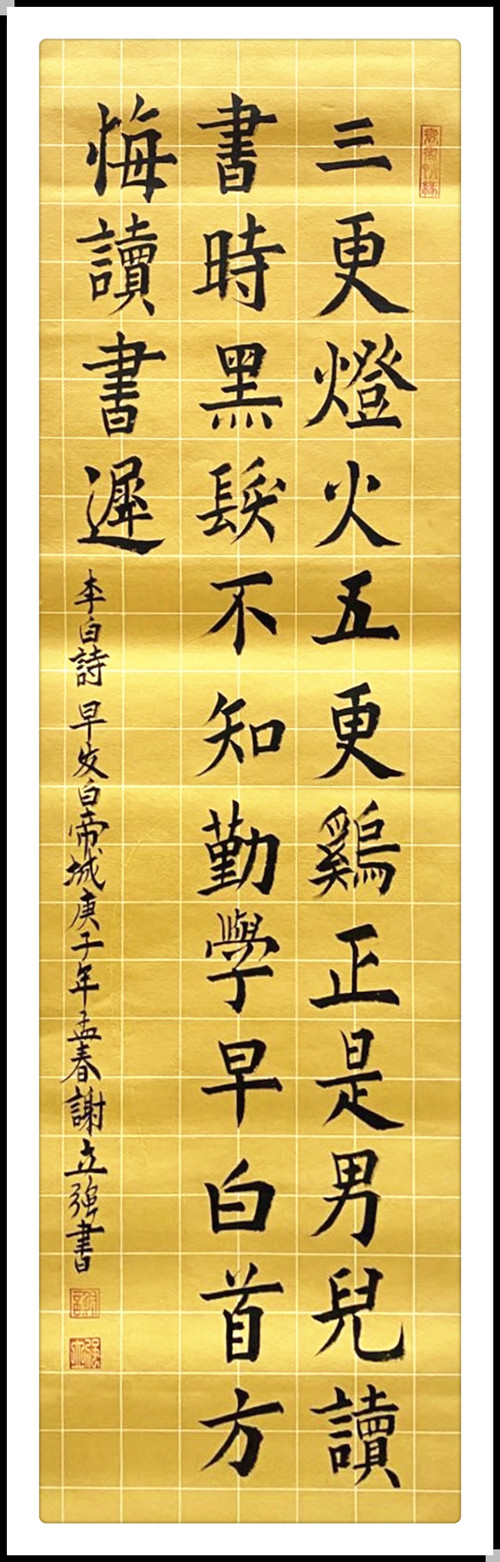 三更燈火五更鷄正是男兒讀
書時黑髮不知勤學早白首方
悔讀書遲
李白詩 早发白帝城庚子年孟春謝立强書